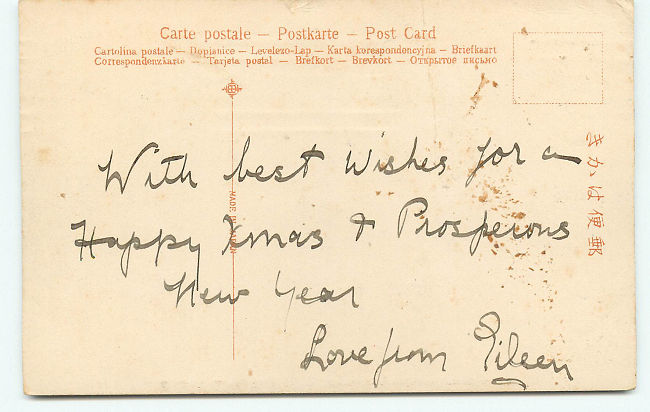 Carte postale — Postkarte — Post Card
Cartolina postale — Dopisnice — Levelezo-Lap — Karta korespondencyjna — Briefkaart
Correspondenzkarte — Tarjeta postal — Brefkort — Brevkort — Открытое письмо
きかは便郵
MADE
With best Wishes for a
Happy Xmas & Prosperous
New Year
Love from Eileen